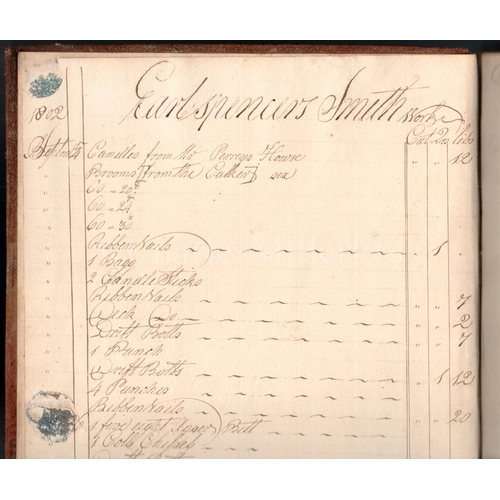 Earl Spencers Smith Work
1802 Cwt Qrs lbs
Septmr 4 Candles from Mr Perreys House " " 12
Brooms [from the Calker] six
60 - 20d
60 - 24
60 - 30
Ribben Nails " 1 .
1 Bagg
2 Candle Sticks
Ribben Nails " " 7
Deck Do " " 2
Drift Bolts " " 7
1 Punch
Drift Bolts " 1 12
4 Punches
Ribben Nails " " 20
1 five eight Bitt
1 Cold Chissel